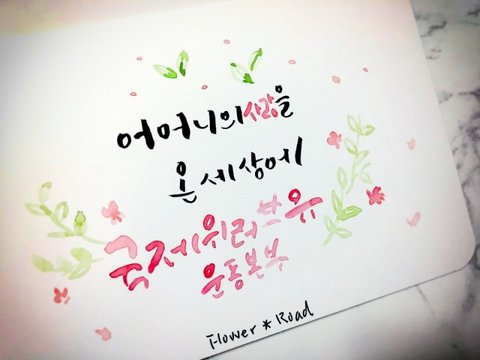 어머니의 사랑을
온 세상에
국제위러브유
운동본부
Flower * Road